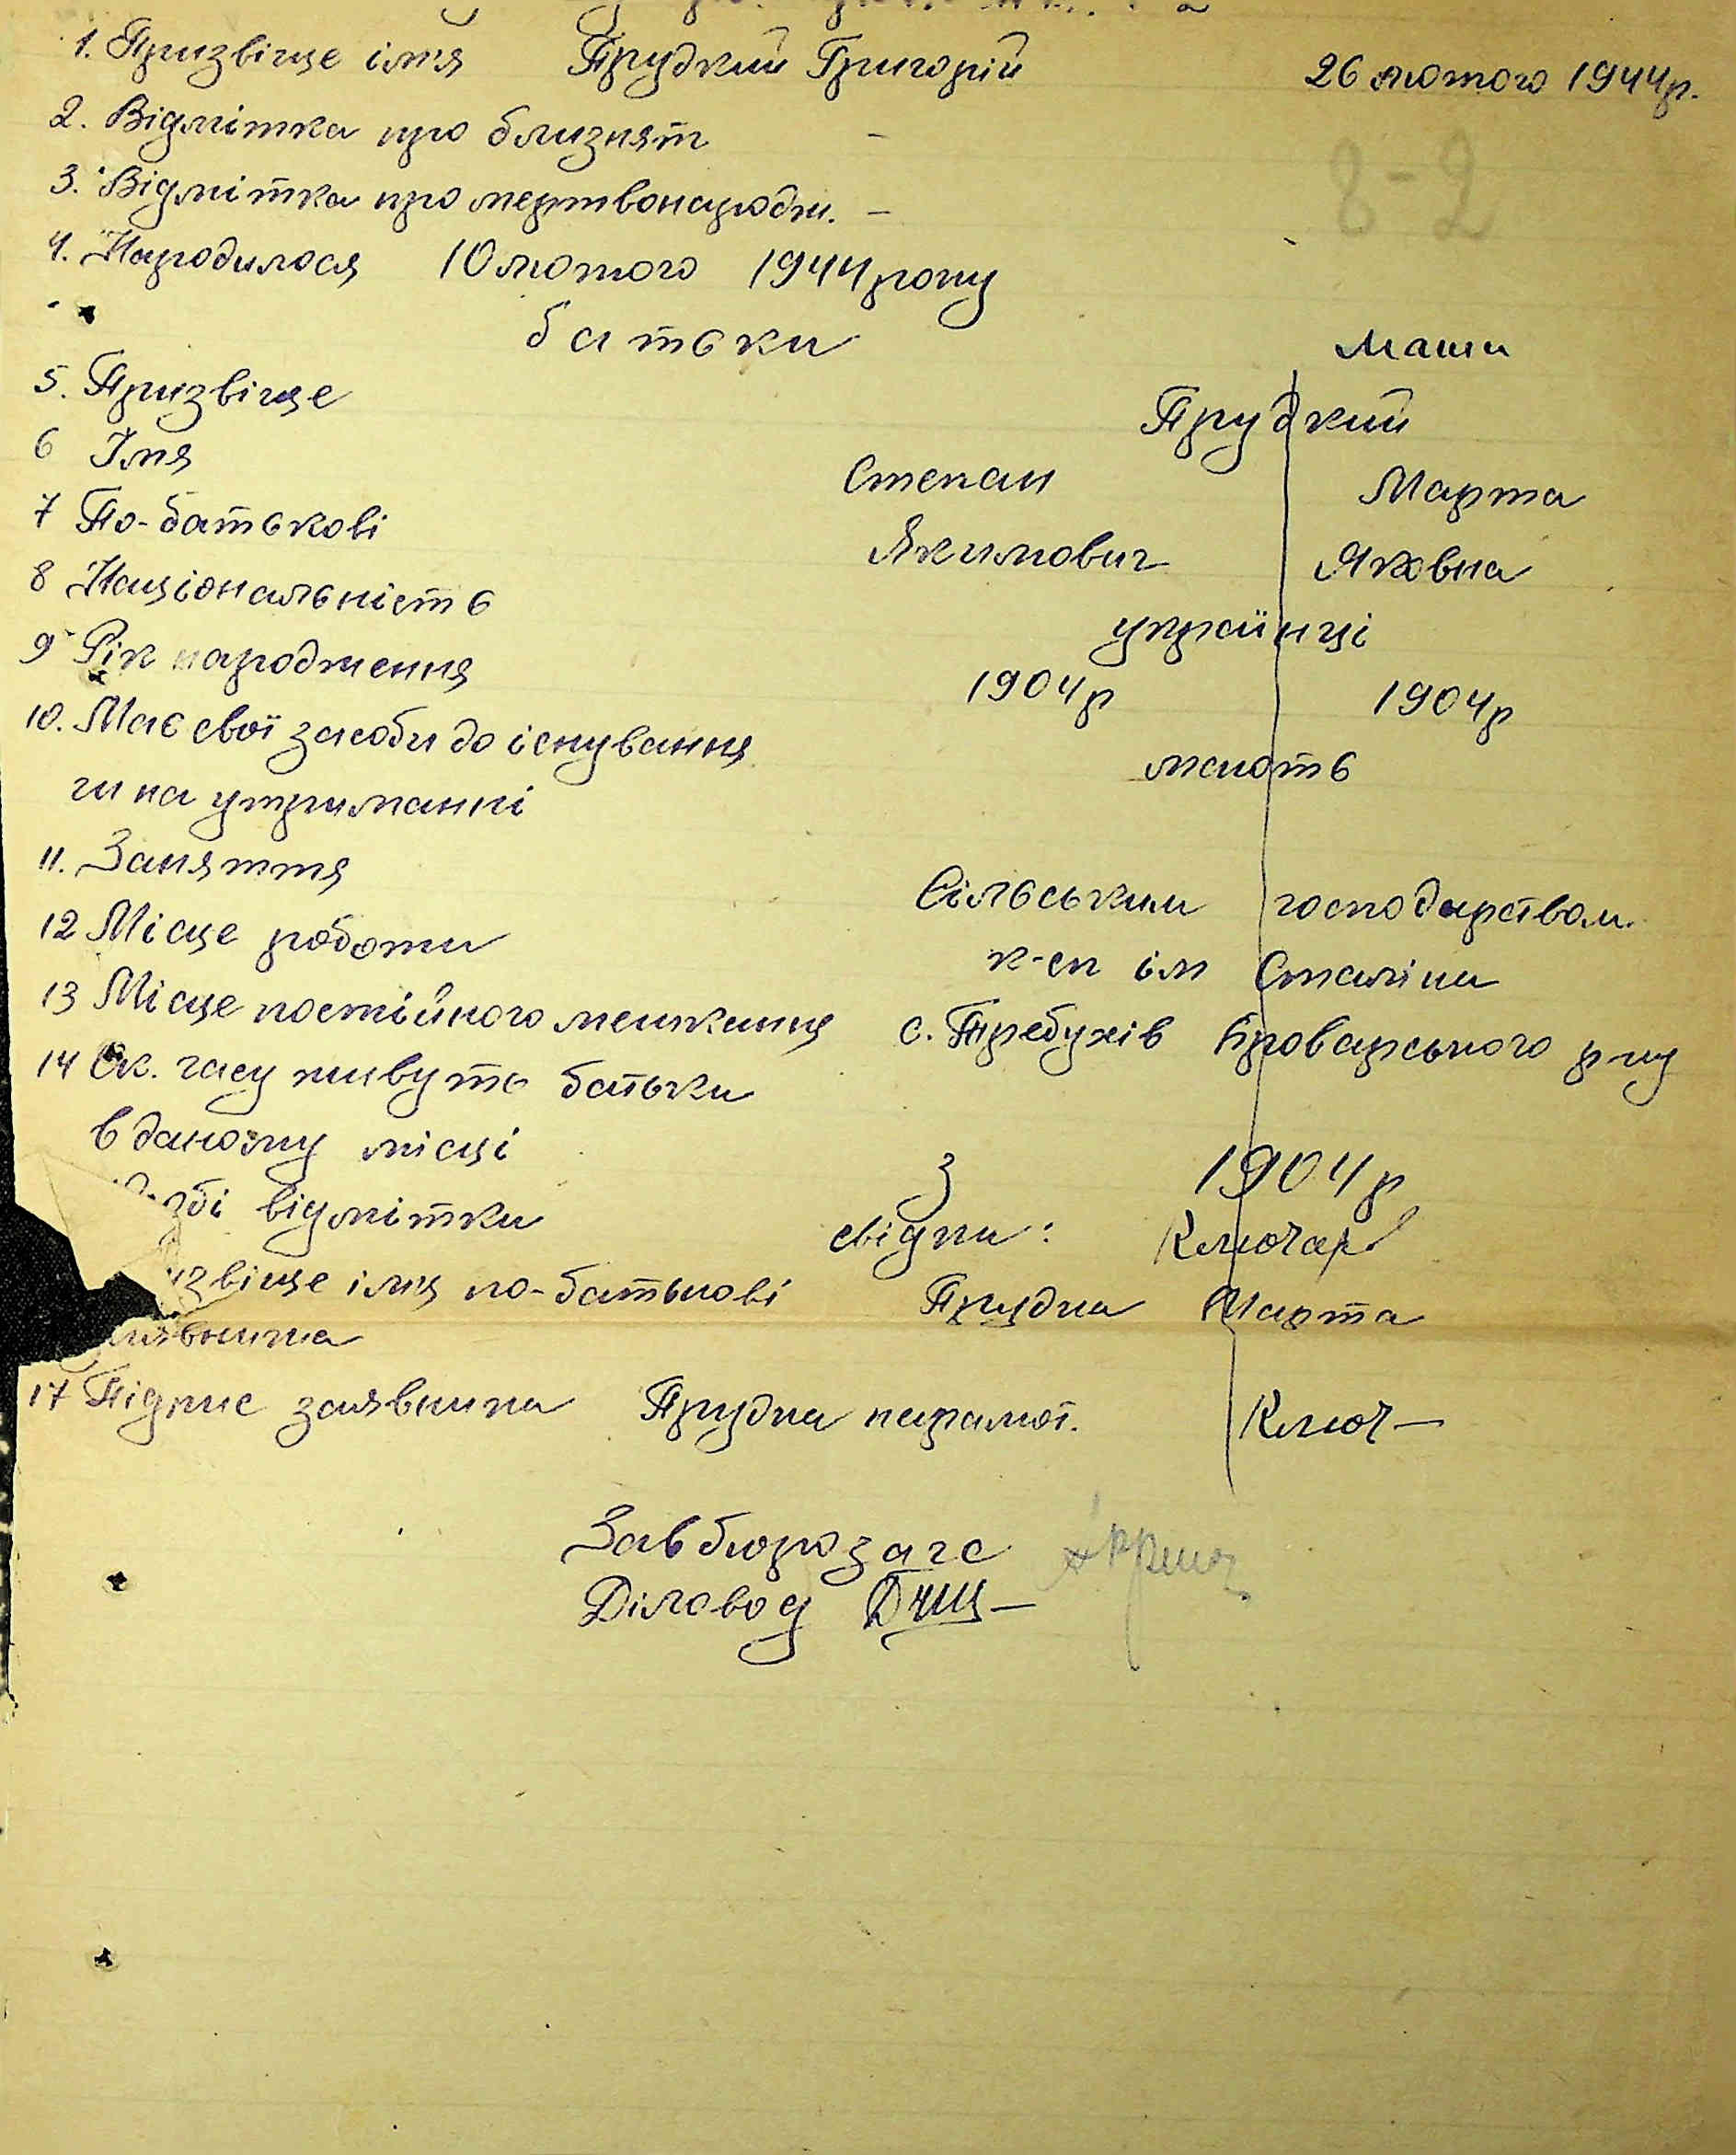 1. Призвіще ім'я Прудкий Григорій 26 лютого 1944р.
2. Відмітка про близнят -
8-2
3. Відмітка про мертвонародж. -
4. Народилося 10 лютого 1944 року
батьки мати
5. Призвіще Прудкий
6 Імя Степан Марта
7 По-батькові Якимович Яковна
8 Національність українці
9 Рік народження 1904р 1904р
10. Має свої засоби до існування мають
чи на утриманні
11. Заняття Сільським господарством.
12 Місце роботи к-сп ім Сталіна
13 Місце постійного мешкання с. Требухів Броварського р-ну
14 Ск. часу живуть батьки
в даному місці З 1904р
збі відмітки свідки: Ключар
звіще імя по-батькові Прудка Марта
заявника
17 Підпис заявника Прудка неграмот. Ключ-
Завбюро загс
Діловод